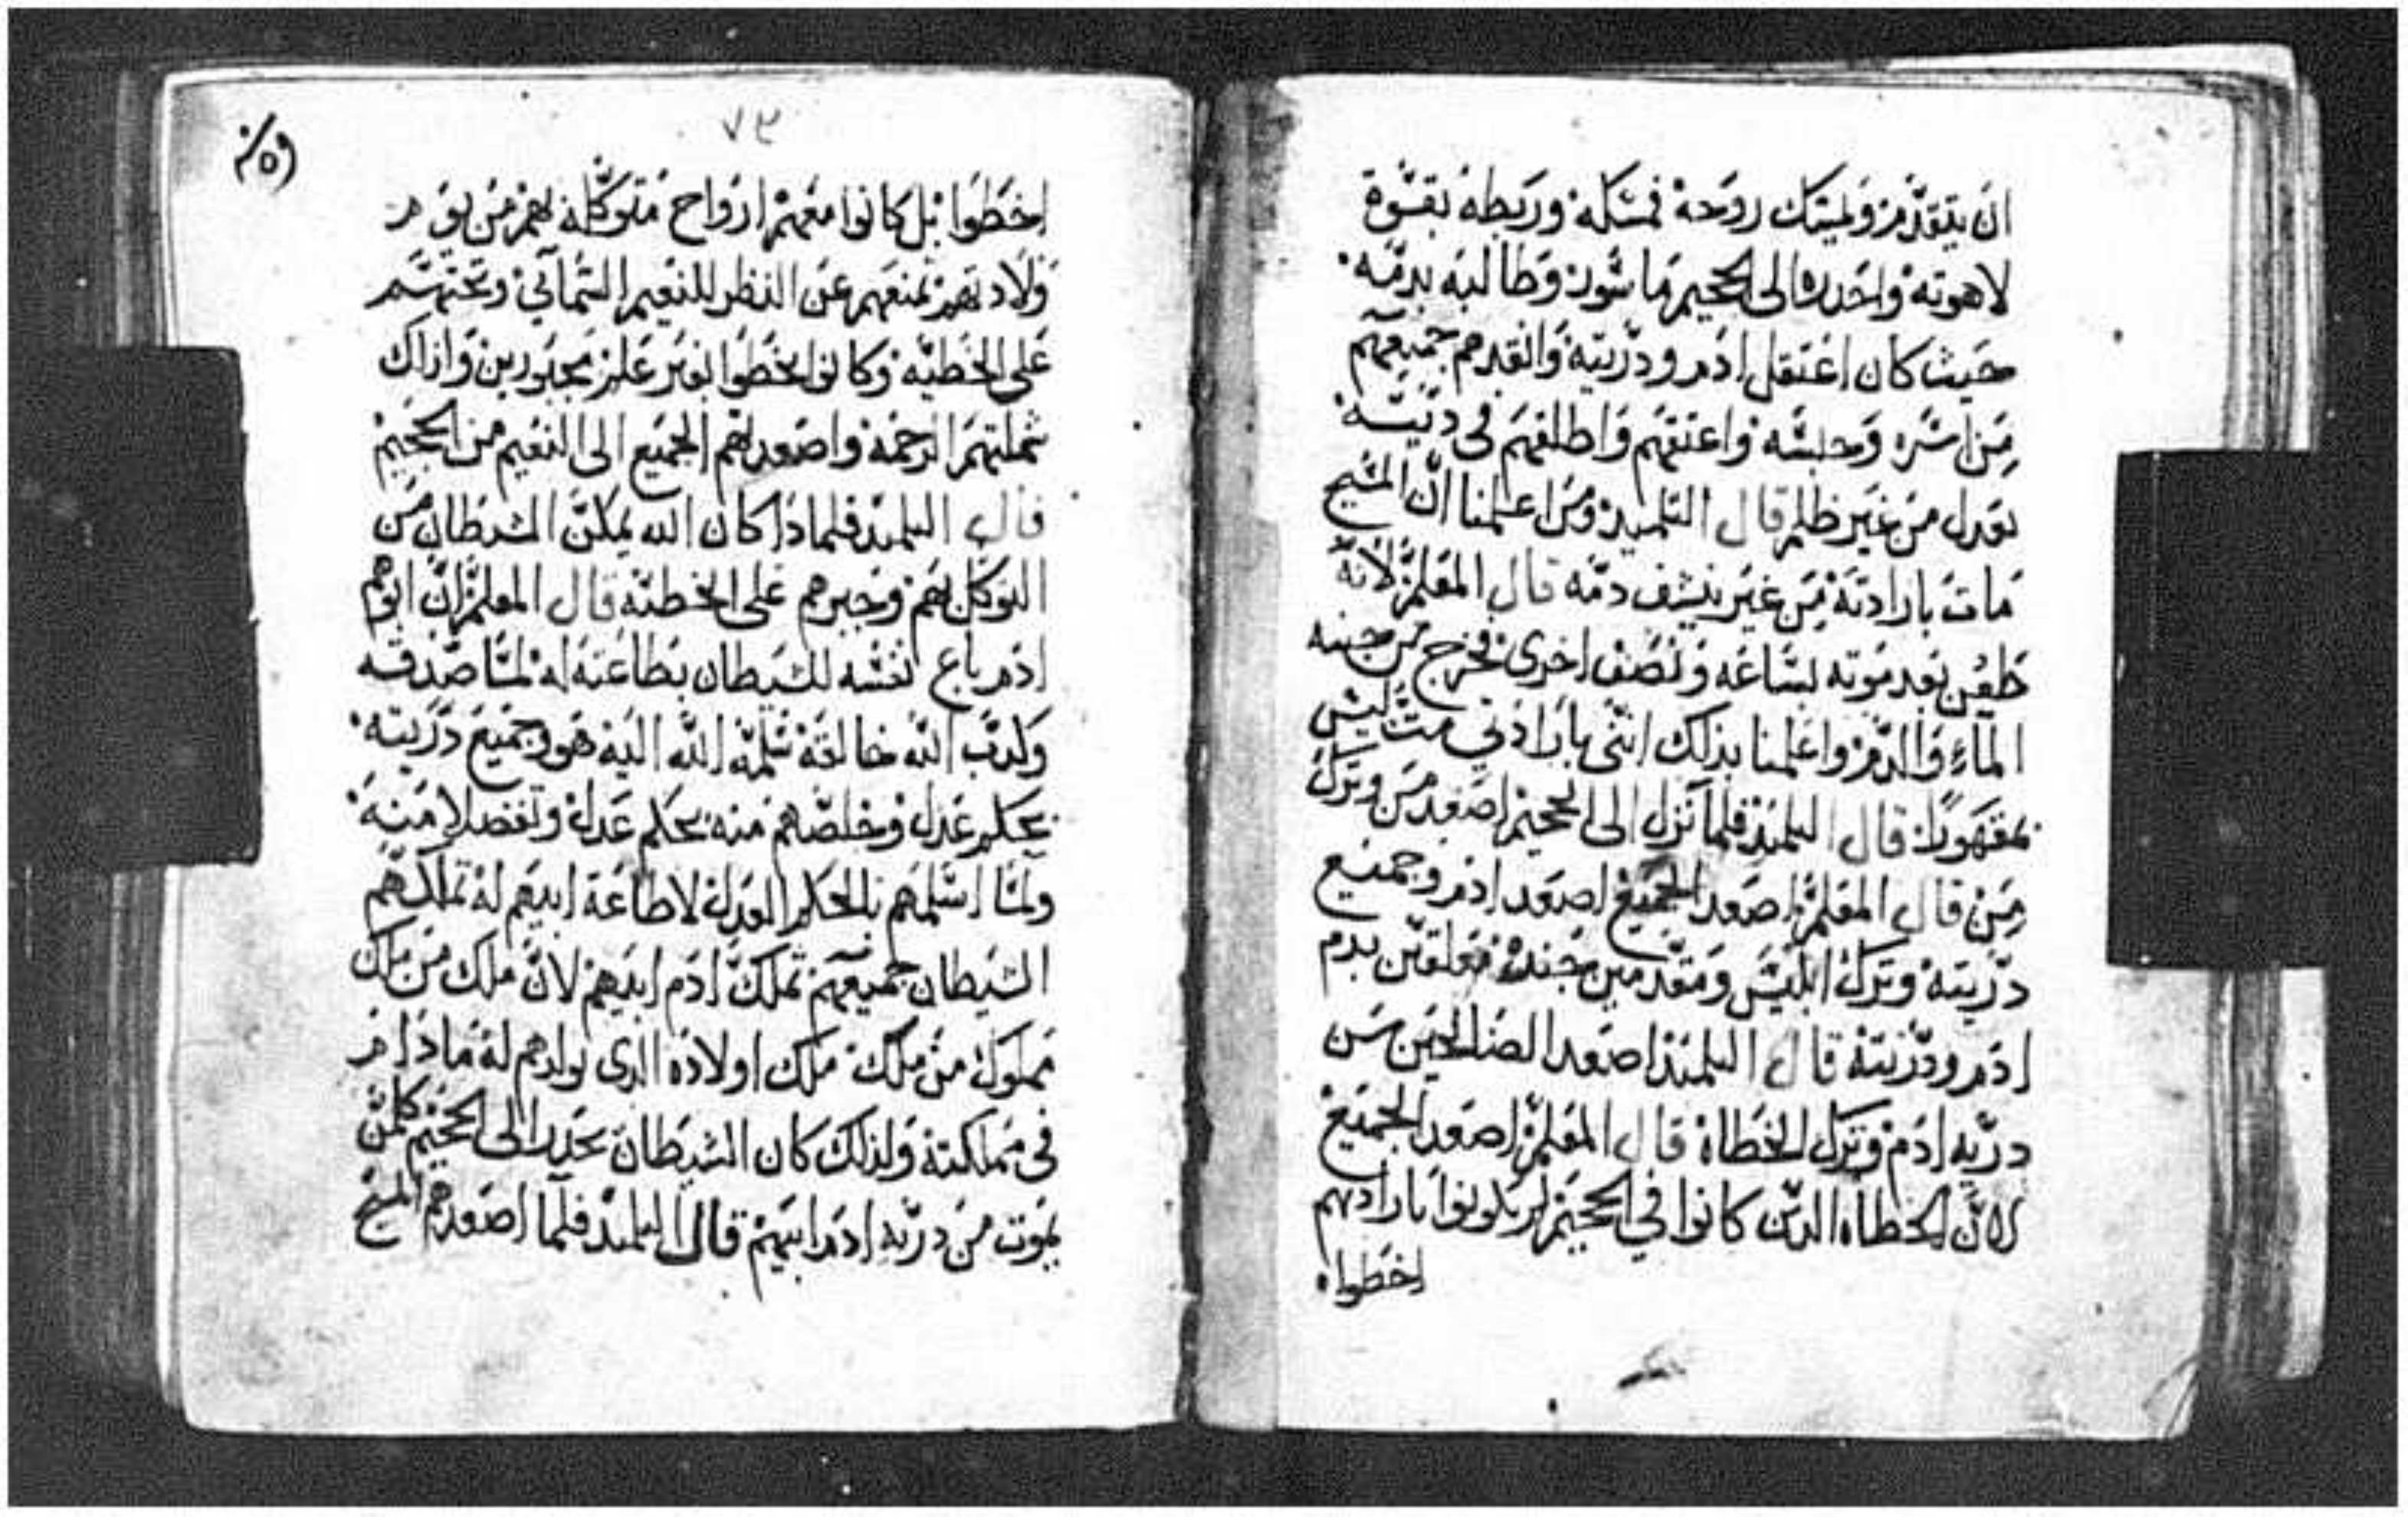 ان يتقدم وليمتك روحه فمسكه وربطه بقوة
لاهوته واحدره الى الجحيم ماسور وطالبه بدمه
حيث كان اعتقل ادم ودريته وانقدهم جميعهم
من اسره وحبسه واعتقهم واطلقهم في ديته
بعدل من غير ظلم قال التلميد ومن اعلمنا ان المسيح
مات بارادته من غير نشف دمه قال المعلم لانه
طعن بعد موته بساعه ونصف اخرى فخرج من جنبه
الماء والدم واعلمنا بدلك انني بارادتي مت ليس
بمقهورا قال التلميد فلما نزل الى الجحيم اصعد من وترك
من قال المعلم اصعد الجميع اصعد ادم وجميع
دريته وترك ابليس ومتقدمين جنده معلقين بدم
ادم ودريته قال التلميد اصعد الصالحين من
دريه ادم وترك الخطاة قال المعلم اصعد الجميع
لان الخطاه الدين كانوا في الجحيم لم يكونوا بارادتهم
اخطوا
٧٣
اخطوا بل كانوا معهم ارواح متوكله بهم من يوم
ولادتهم تمنعهم عن النظر للنعيم السمائي وتحتهم
على الخطيه وكانوا يخطوا بغير علم مجبورين وادلك
شملتهم الرحمة واصعدهم الجميع الى النعيم من الجحيم
قال التلميد فلمادا كان الله يمكن الشيطان من
التوكل بهم وجبرهم على الخطيه قال المعلم ان ابوهم
ادم باع نفسه للشيطان بطاعته له لما صدقه
وكدب الله خالقه سلمه الله اليه هو وجميع دريته
بحكم عدل وخلصهم منه بحكم عدل وتفضلا منه
ولما اسلمهم بالحكم العدل لاطاعة ابيهم له تملكهم
الشيطان جميعهم تملك ادم ابيهم لان ملك من ملك
مملوك من ملك ملك اولاده الدي تولدهم له مادام
في مملكته ولدلك كان الشيطان يحدر الى الجحيم كلمن
يموت من دريه ادم ابيهم قال التلميد فلما اصعدهم المسيح